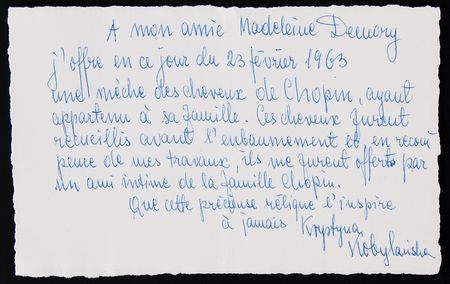 A mon amie Madeleine Demory
j'offre en ce jour du 23 février 1963
une mèche des cheveux de Chopin, ayant
appartenu à sa famille. Ces cheveux furent
recueillis avant l'enbaumement et, en recom
pence de mes travaux, ils me furent offerts par
un ami intime de la famille Chopin.
Que cette précieuse rélique l'inspire
à jamais Krystyna
Kobylańska